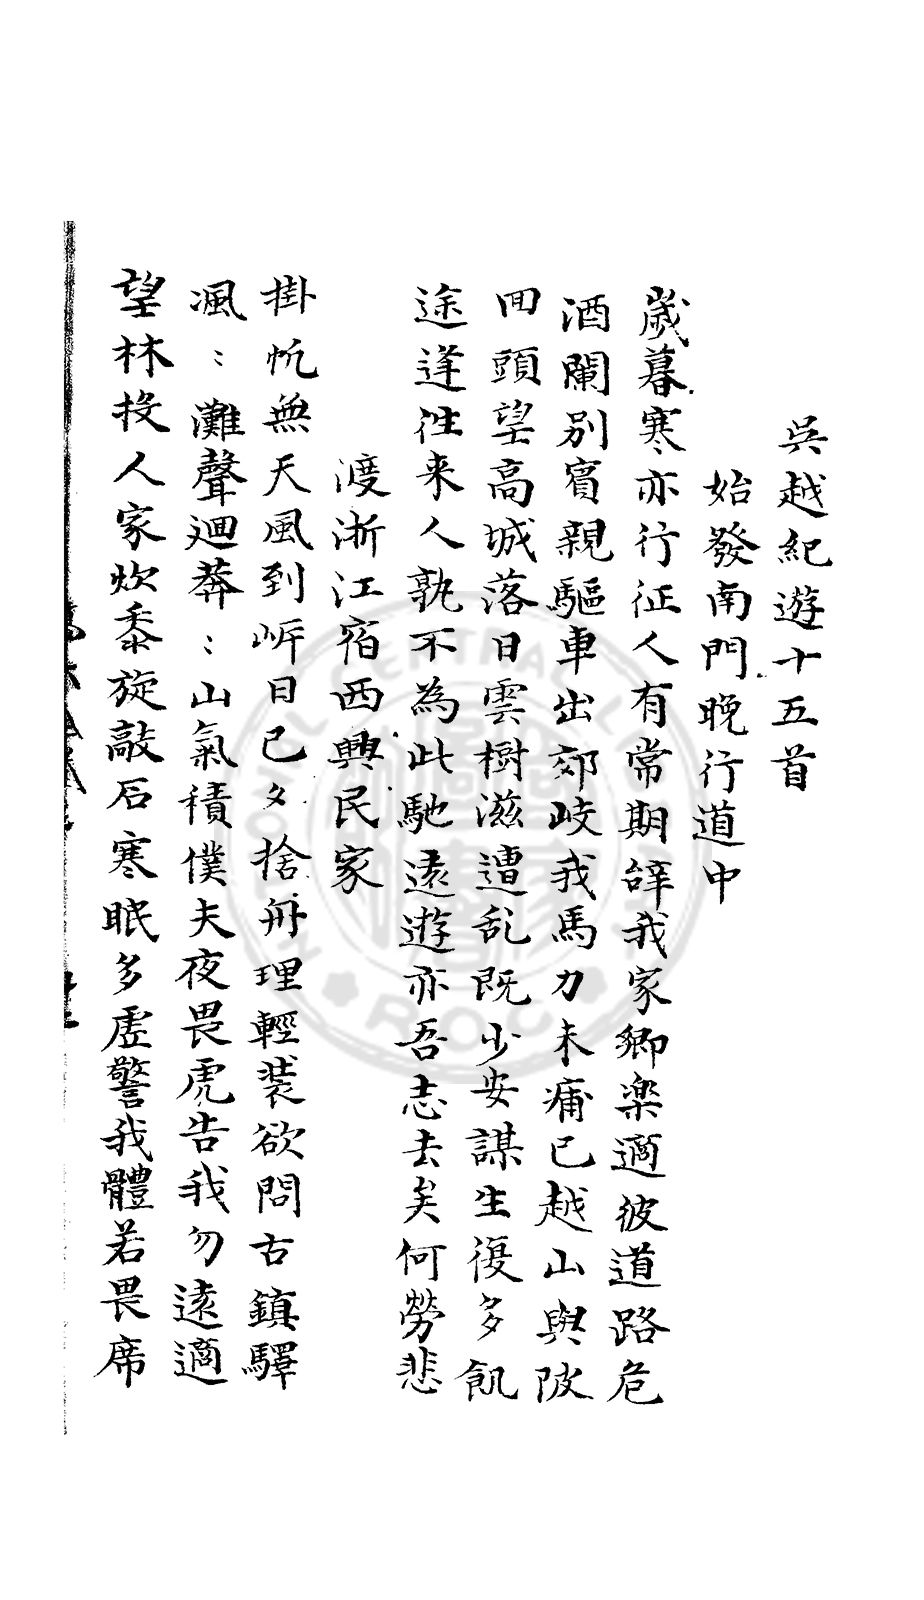 吳越紀遊十五首
始發南門晚行道中
歲暮寒亦行征人有常期辞我家鄉楽適彼道路危
酒闌別賓親驅車出郊岐我馬力未痡已越山與陂
囬頭望高城落日雲樹滋遭乱既少安謀生復多飢
途逢徃来人孰不為此馳遠遊亦吾志去矣何勞悲
渡浙江宿西興民家
掛帆無天風到岍日已夕捨舟理輕装欲問古鎮驛
渢：灘聲廻莽：山氣積僕夫夜畏虎告我勿遠適
望林投人家炊黍旋敲石寒眠多虚警我體若畏席
NATIONAL CENTRAL LIBRARY
R.O.C